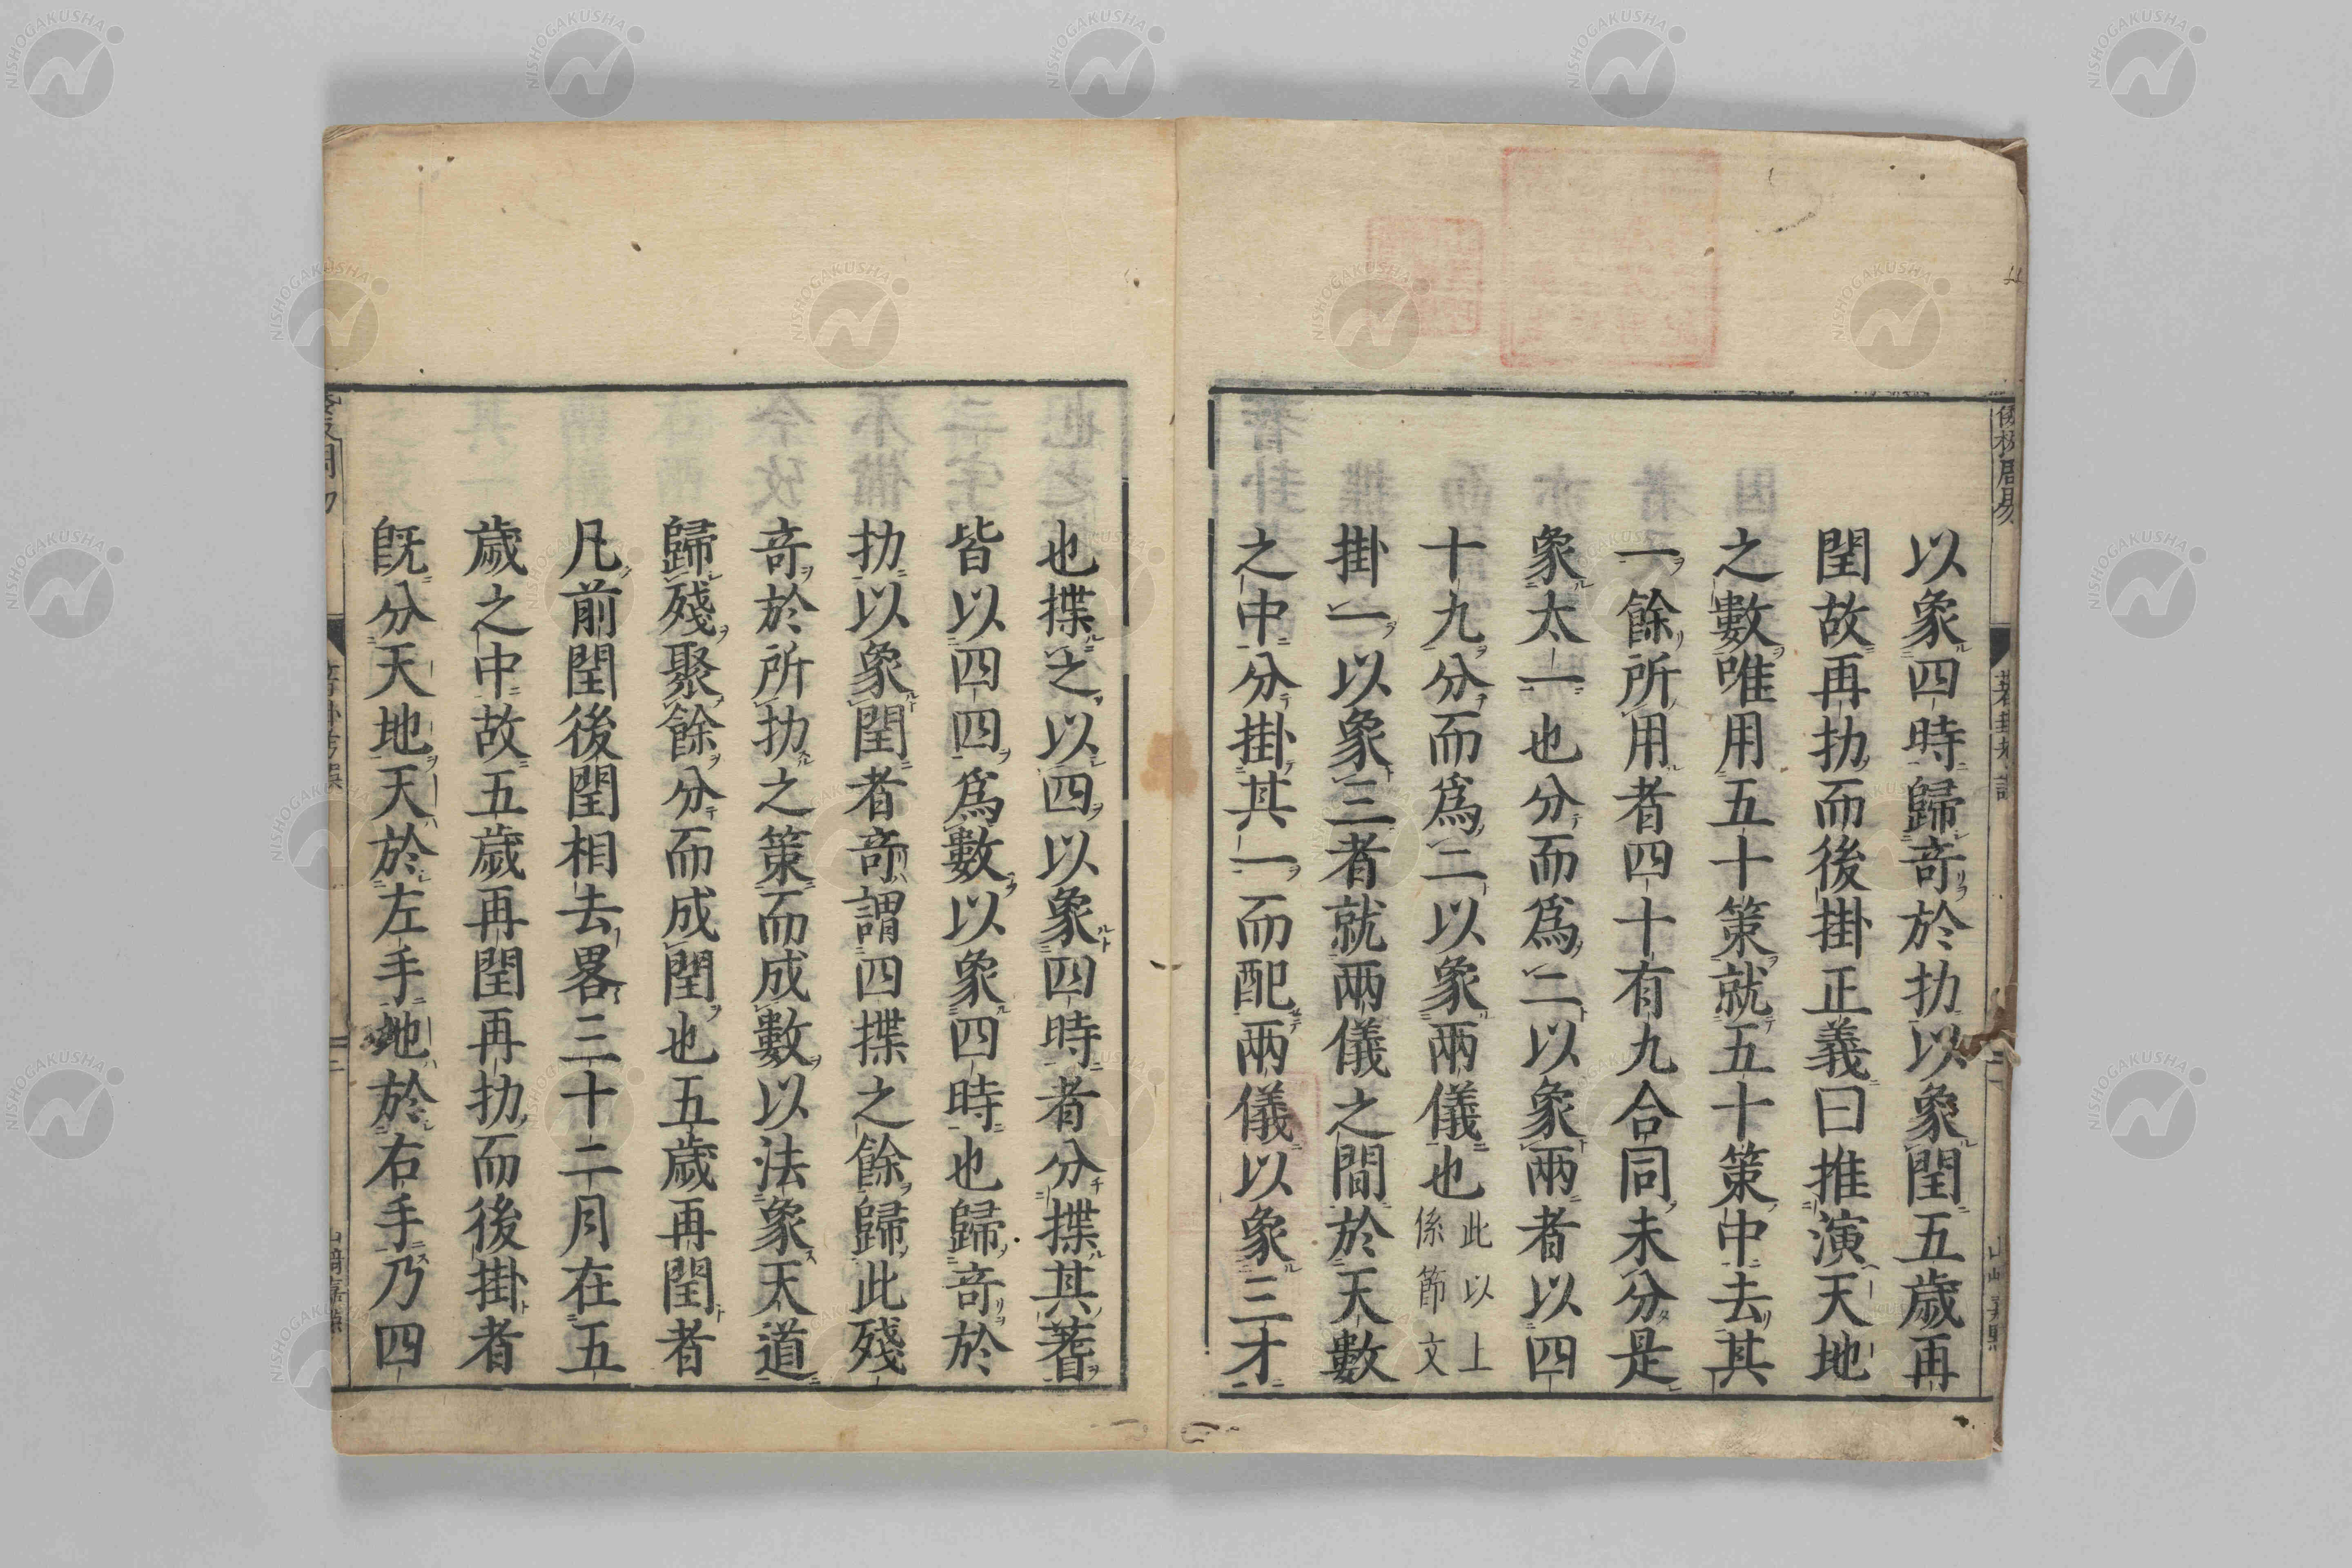 以象四時歸竒於扐以象閏五歳再
閏故再扐而後掛正義曰推演天地
之數唯用五十策就五十策中去其
一餘所用者四十有九合同未分是
象太一也分而爲二以象兩者以四
十九分而爲二以象兩儀也此以上係節文
掛一以象三者就兩儀之間於天數
之中分掛其一而配兩儀以象三才
也揲之以四以象四時者分揲其蓍
皆以四四爲數以象四時也歸竒於
扐以象閏者竒謂四揲之餘歸此殘
竒於所扐之策而成數以法象天道
歸殘聚餘分而成閏也五歳再閏者
凡前閏後閏相去畧三十二月在五
歳之中故五歳再閏再扐而後掛者
旣分天地天於左手地於右手乃四
NISHOGAKUSHA